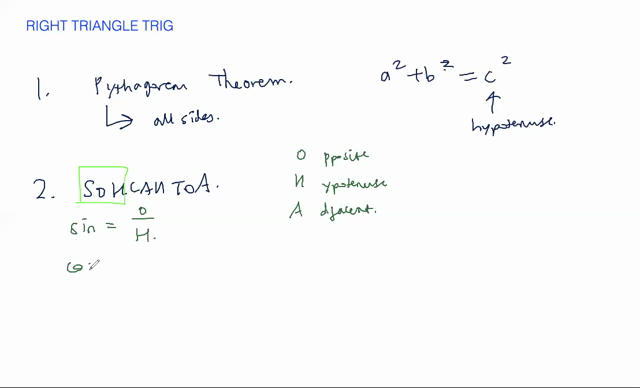 RIGHT TRIANGLE TRIG
1. Pythagorem Theorem.
all sides.
a² + b² = c²
hypotenuse.
2. SOHCAHTOA.
O pposite
H ypotenuse
A djacent.
sin = O/H.
co